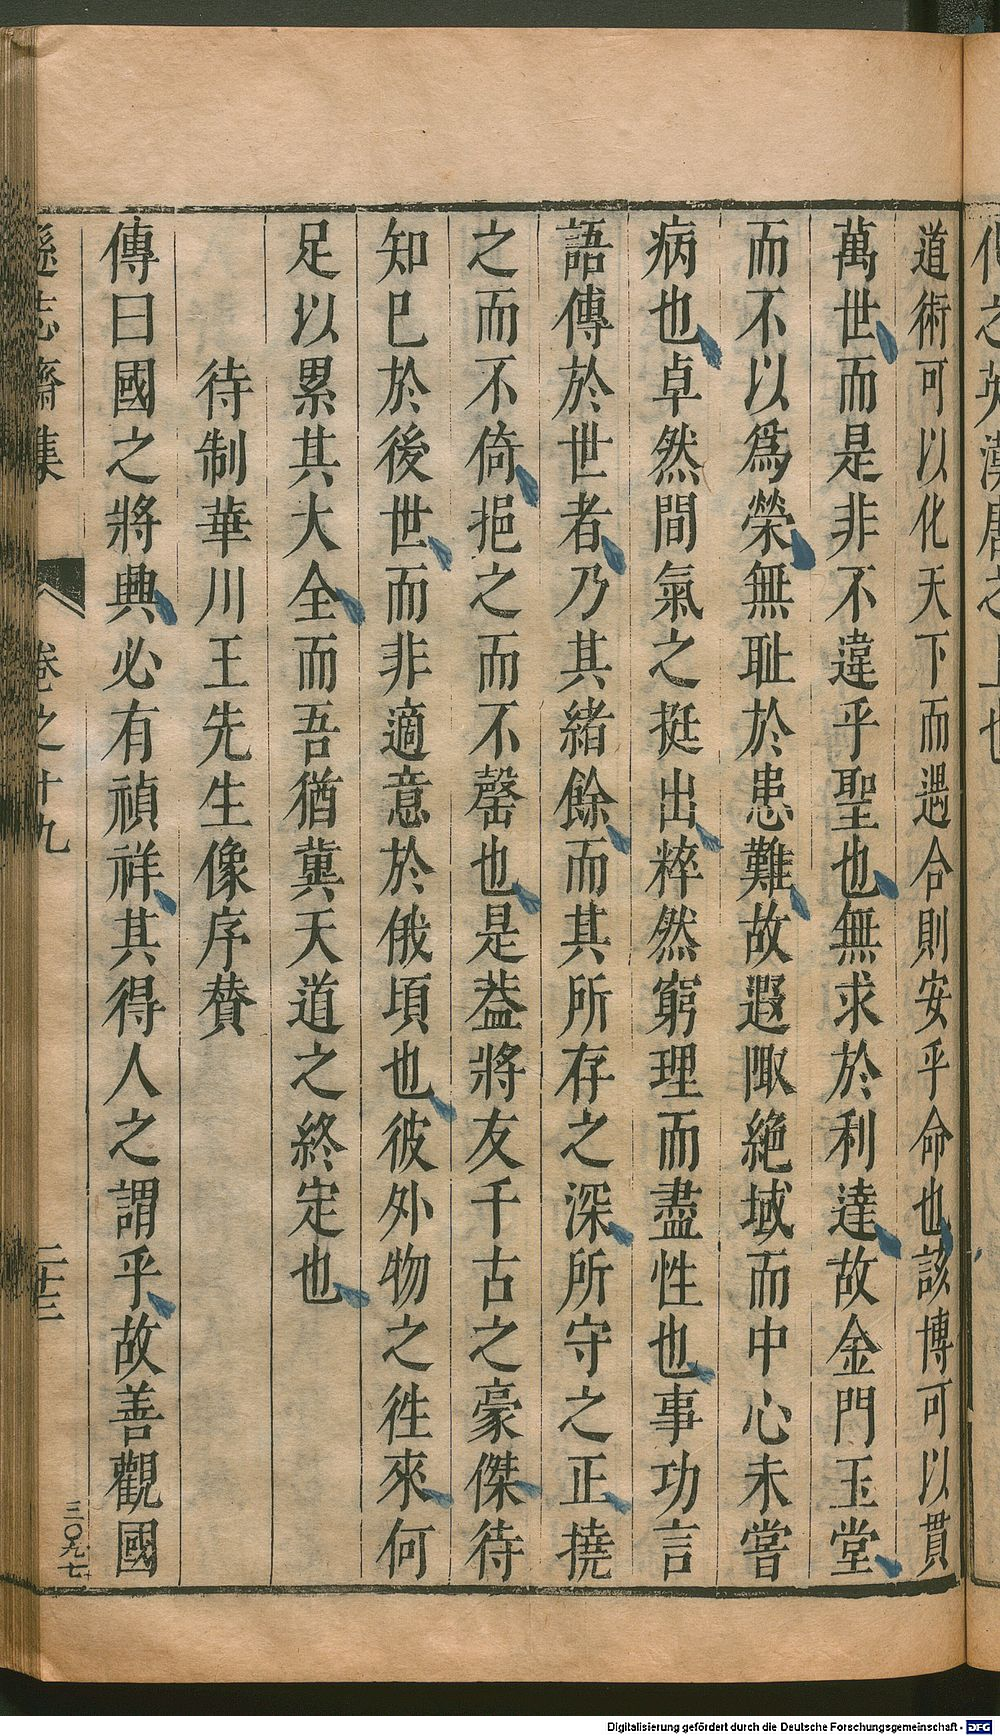 道術可以化天下而遇合則安乎命也該博可以貫
萬世而是非不違乎聖也無求於利達故金門玉堂
而不以爲榮無耻於患難故遐陬絶域而中心未嘗
病也卓然間氣之挺出粹然窮理而盡性也事功言
語傳於世者乃其緒餘而其所存之深所守之正撓
之而不倚挹之而不罄也是葢將友千古之豪傑待
知已於後世而非適意於俄頃也彼外物之徃來何
足以累其大全而吾猶冀天道之終定也
待制華川王先生像序贊
傳曰國之將興必有禎祥其得人之謂乎故善觀國
遜志齋集 卷之十九 二十三
三〇九七
Digitalisierung gefördert durch die Deutsche Forschungsgemeinschaft - DFG